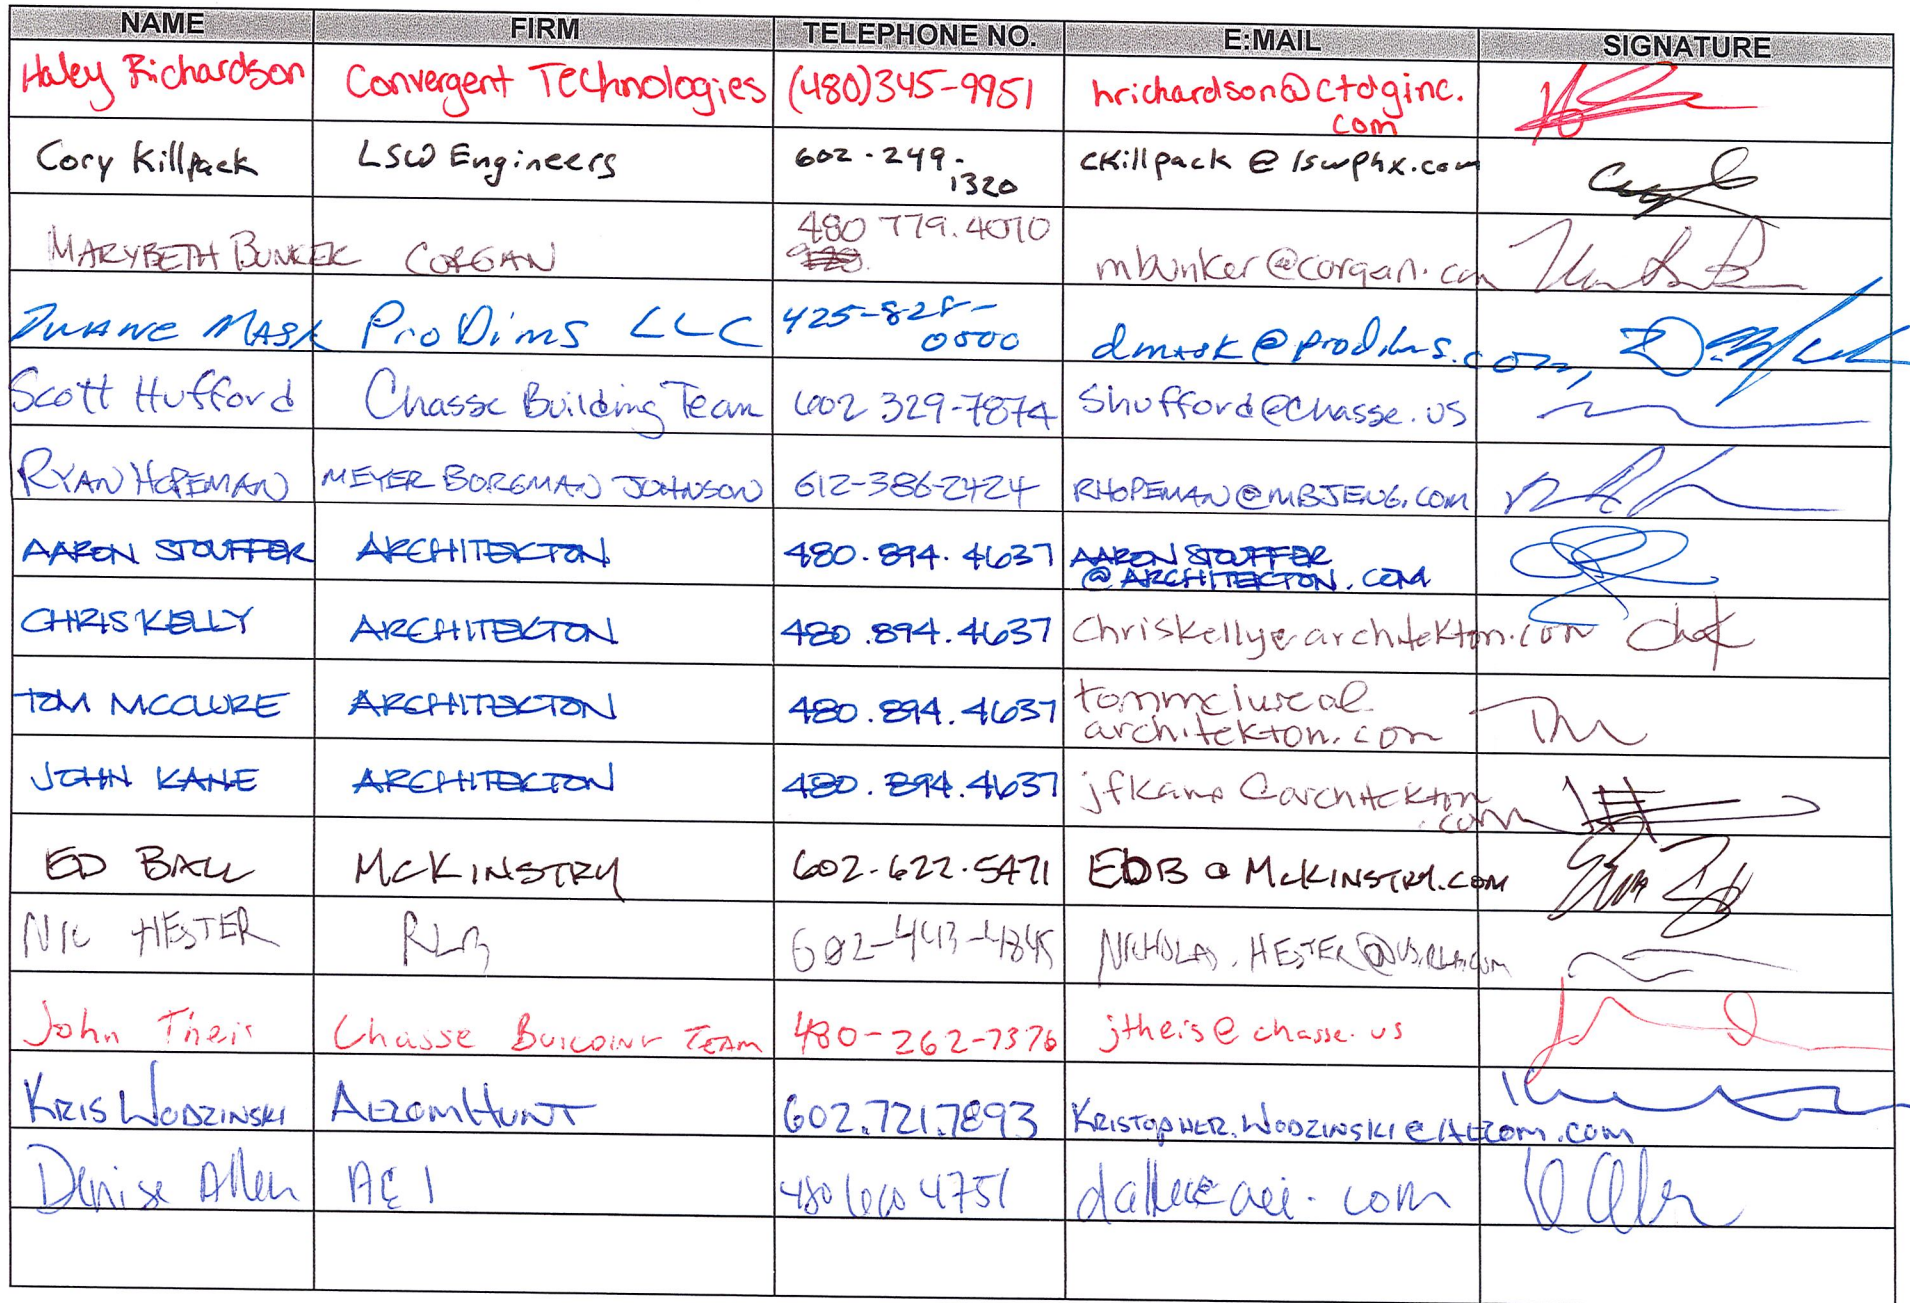 NAME FIRM TELEPHONE NO. E:MAIL SIGNATURE
Haley Richardson Convergent Technologies (480)345-9951 hrichardson@ctdginc.
com
Cory Killpack LSW Engineers 602-249- ckillpack@lswphx.com
1320
480 779.4070
MARYBETH BUNKER CORGAN mbunker@corgan.com
DUANE MASK ProDims LLC 425-828- dmask@prodims.com
0000
Scott Hufford Chasse Building Team 602 329-7874 Shufford@chasse.us
RYAN HOPEMAN MEYER BORGMAN JOHNSON 612-386-2424 RHOPEMAN@MBJENG.COM
AARON STOUFFER ARCHITEKTON 480.894.4637 AARON STOUFFER
@ARCHITEKTON.COM
CHRIS KELLY ARCHITEKTON 480.894.4637 Chriskelly@architekton.com
TOM MCCLURE ARCHITEKTON 480.894.4637 tommclure@
architekton.com
JOHN KANE ARCHITEKTON 480.894.4637 jfkane@architekton
.com
ED BALL McKINSTRY 602-622-5471 EDB@McKINSTRY.COM
NIC HESTER RLB 602-443-4845 NICHOLAS.HESTER@US.RLB.COM
John Theis Chasse BUILDING TEAM 480-262-7376 jtheis@chasse.us
KRIS WODZINSKI AECOM HUNT 602.721.7893 KRISTOPHER.WODZINSKI@AECOM.COM
Denise Allen AEI 480 4751 dallen@aei.com